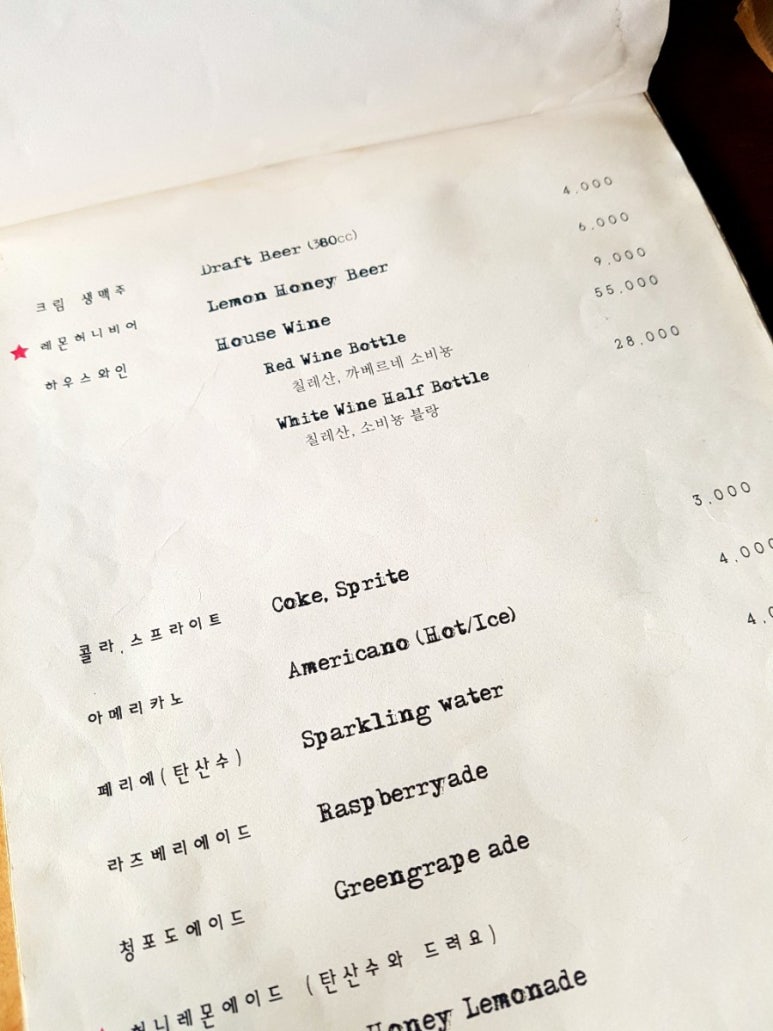 크림 생맥주 Draft Beer (380cc) 4,000
레몬허니비어 Lemon Honey Beer 6,000
하우스와인 House Wine 9,000
Red Wine Bottle 55,000
칠레산, 까베르네 소비뇽
White Wine Half Bottle 28,000
칠레산, 소비뇽 블랑
콜라, 스프라이트 Coke, Sprite 3,000
아메리카노 Americano (Hot/Ice) 4,000
페리에(탄산수) Sparkling water
라즈베리에이드 Raspberryade
청포도에이드 Greengrape ade
허니레몬에이드 (탄산수와 드려요)
Honey Lemonade